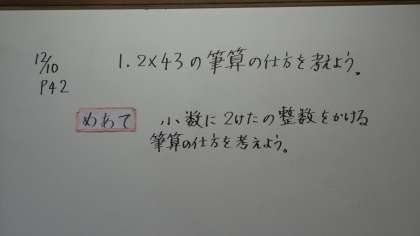 12/10
P42
1.2×43の筆算の仕方を考えよう。
めあて
小数に2けたの整数をかける
筆算の仕方を考えよう。